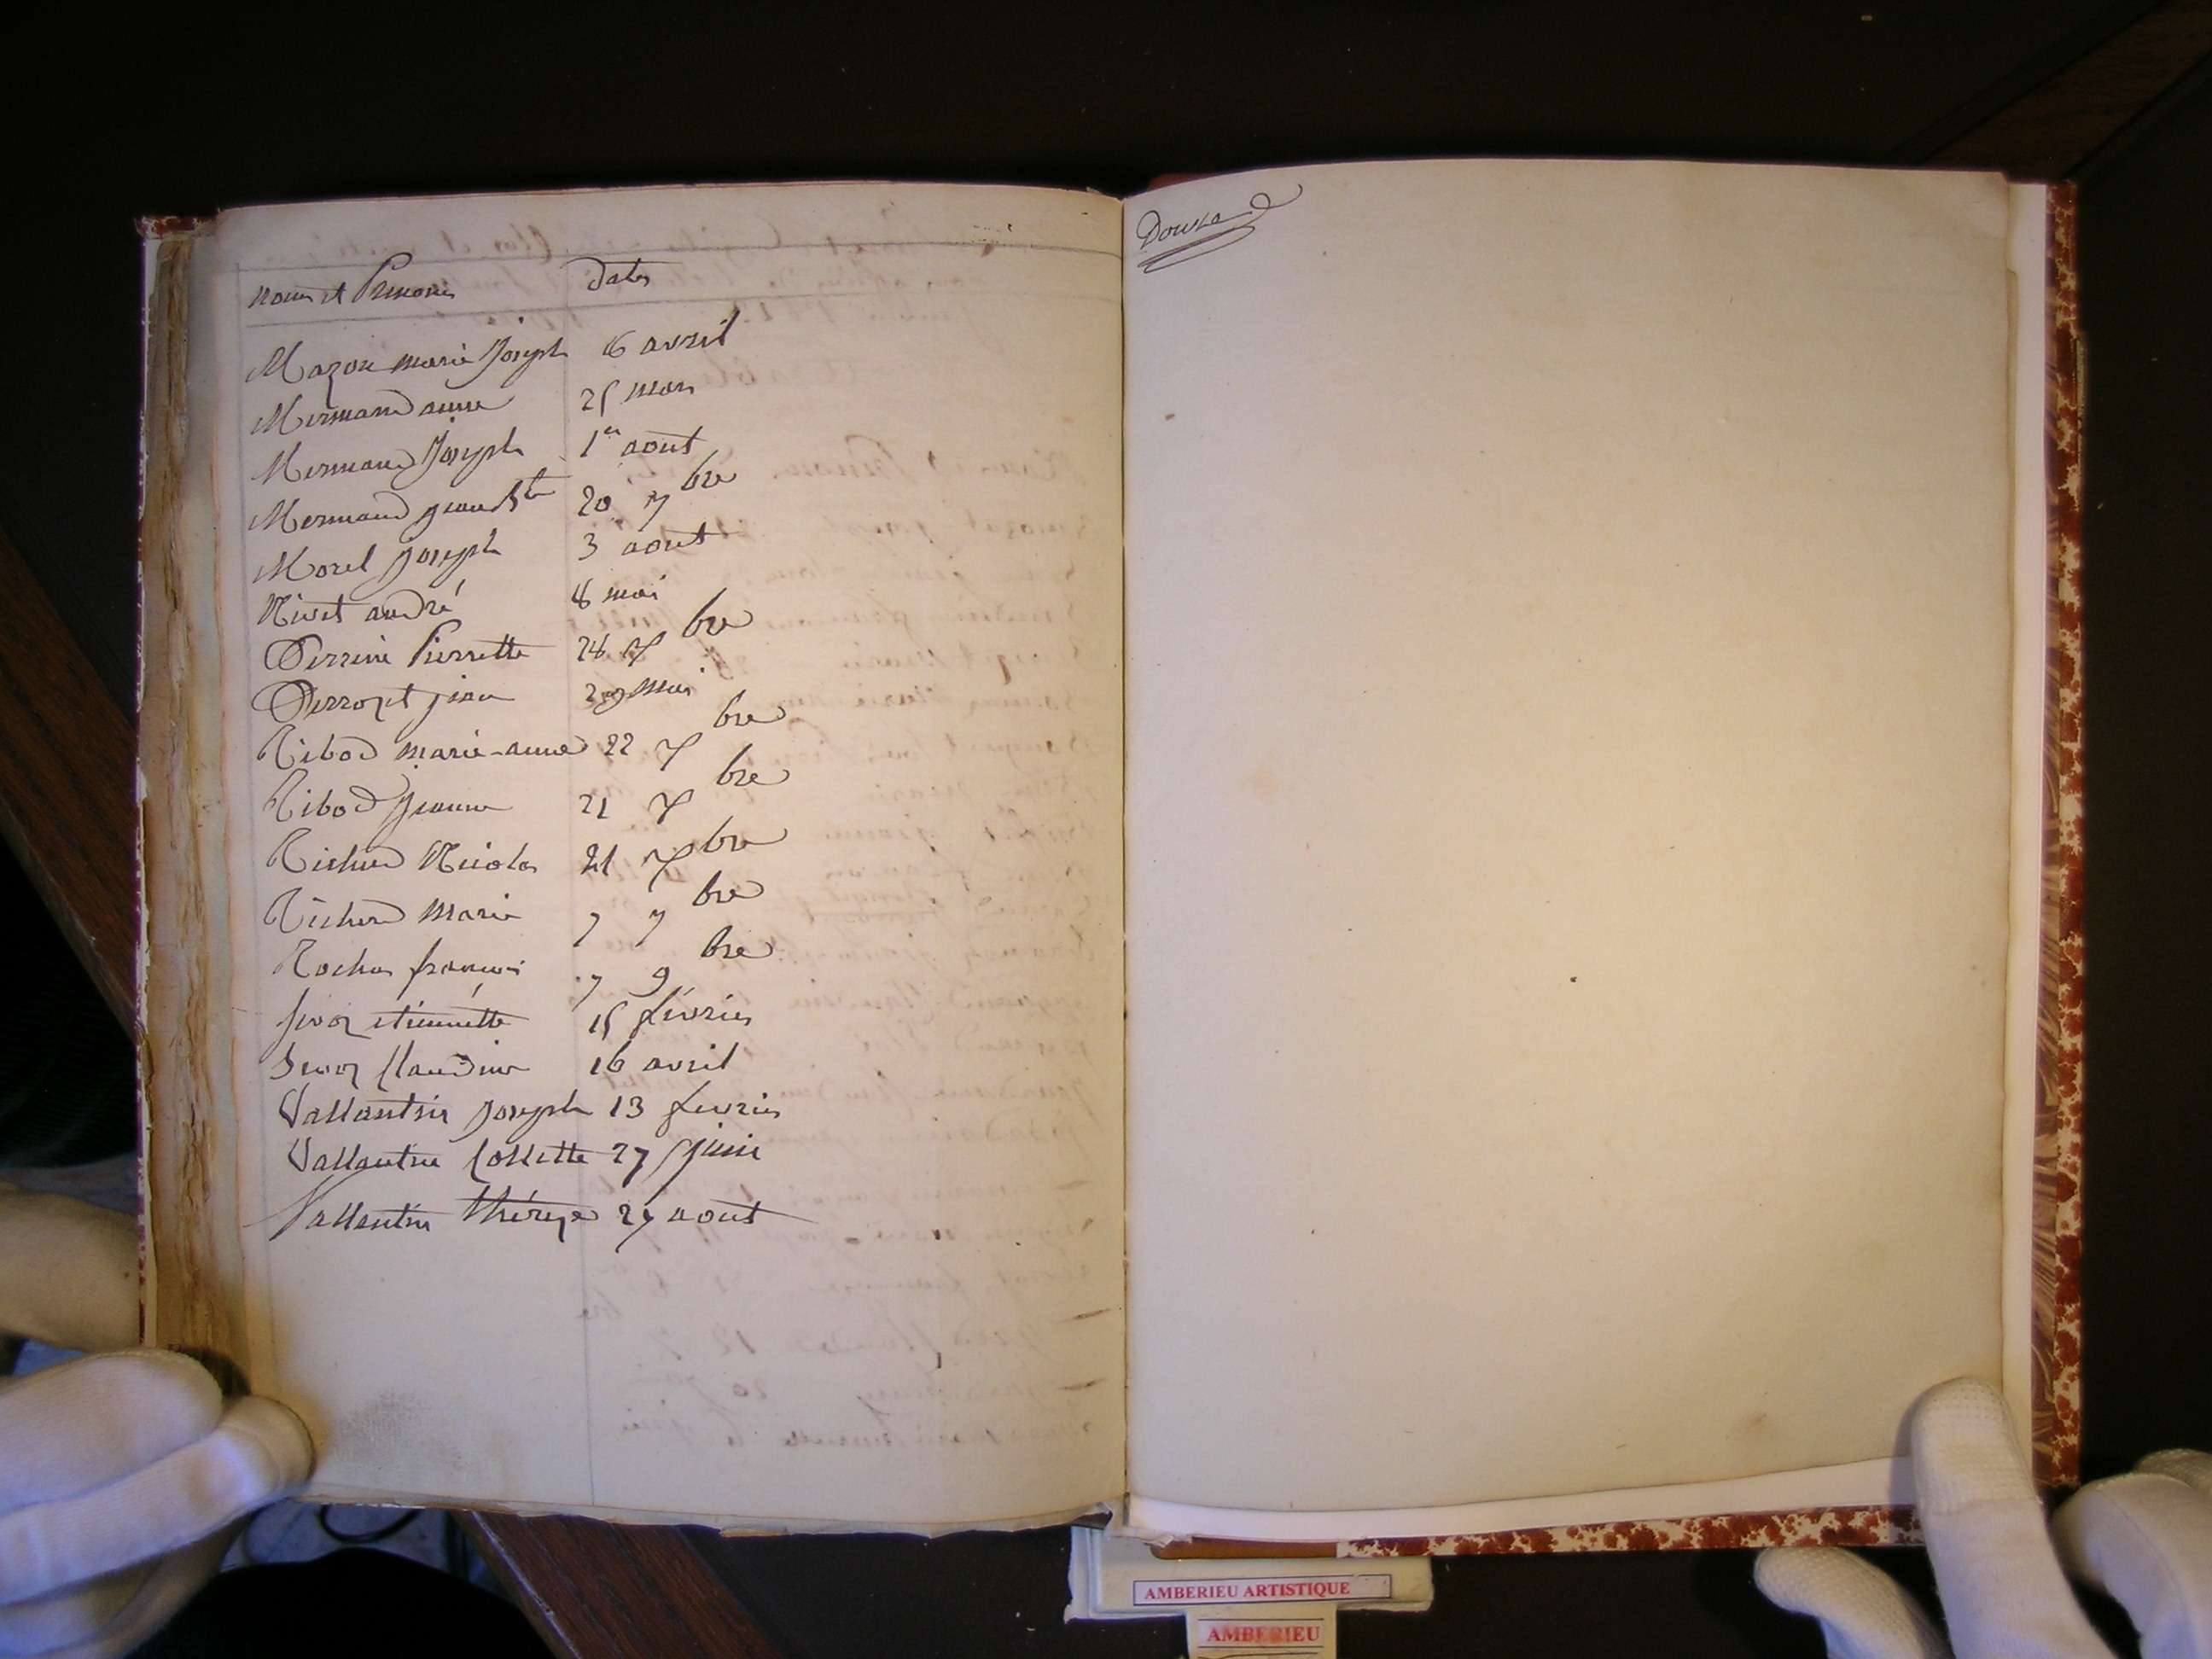 noms et Prenoms Dates
Mazon marie Joseph 6 avril
Mermand anne 25 mars
Mermand Joseph 1er aout
Mermand jean Bte 20 7bre
Morel Joseph 3 aout
Nivet andré 8 mai
Perrine Pierrette 28 7bre
Perrozet jean 29 mai
Ribod marie-anne 22 7bre
Ribod Jeanne 21 7bre
Richard Nicolas 21 7bre
Richard Marie 7 7bre
Rochas françois 7 9bre
Sevoz etiennette 15 février
Sevoz Claudine 16 avril
Vallantin Joseph 13 fevrier
Vallantin Collette 27 Juin
Vallantin thérèze 27 aout
AMBERIEU ARTISTIQUE
AMBERIEU